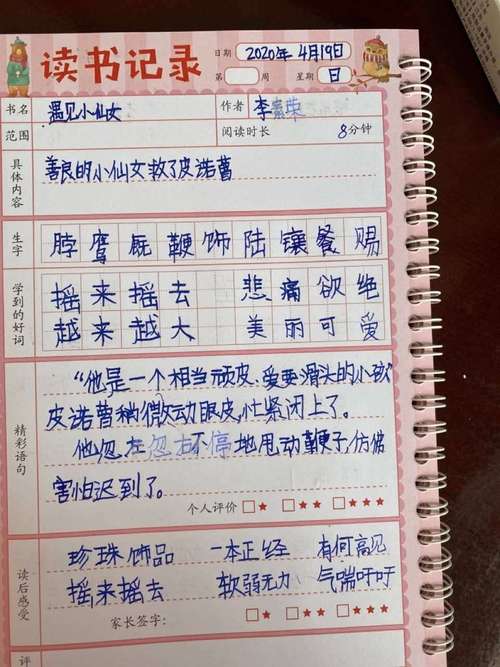 读书记录
日期 2020年4月19日
第 周 星期 日
书名 遇见小仙女 作者 李
范围 阅读时长 8分钟
具体内容 善良的小仙女救了皮诺曹
生字 脖 鹰 既 鞭 饰 陆 镶 餐 赐
学到的好词 摇来摇去 悲痛欲绝
越来越大 美丽可爱
精彩语句 “他是一个相当顽皮、爱耍滑头的小孩”
皮诺曹稍微动眼皮,忙紧闭上了。
他忽左忽右不停地甩动鞭子,仿佛
害怕迟到了。
个人评价 □★ □★★ □★★★
读后感受 珍珠饰品 一本正经 有何高见
摇来摇去 软弱无力 气喘吁吁
家长签字: □★ □★★ □★★★
评